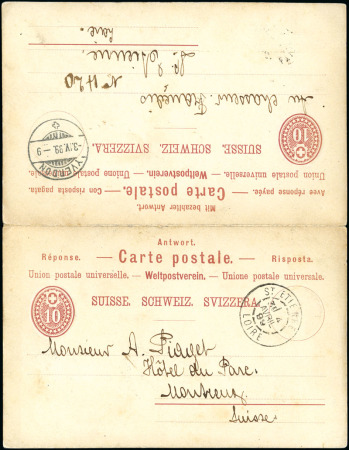 Mit bezahlter Antwort.
Avec réponse payée. — Carte postale. — Con risposta pagata.
Union postale universelle. — Weltpostverein. — Unione postale universale.
SUISSE. SCHWEIZ. SVIZZERA.
10
YVERDON
-3.IV.99.-9
Au chasseur Français
No 1120
St Etienne
Loire.
Antwort.
Réponse. — Carte postale. — Risposta.
Union postale universelle. — Weltpostverein. — Unione postale universale.
SUISSE. SCHWEIZ. SVIZZERA.
10
ST ETIENNE
4
AVRIL
99
LOIRE
Monsieur A. Piaget
Hôtel du Parc.
Montreux
Suisse